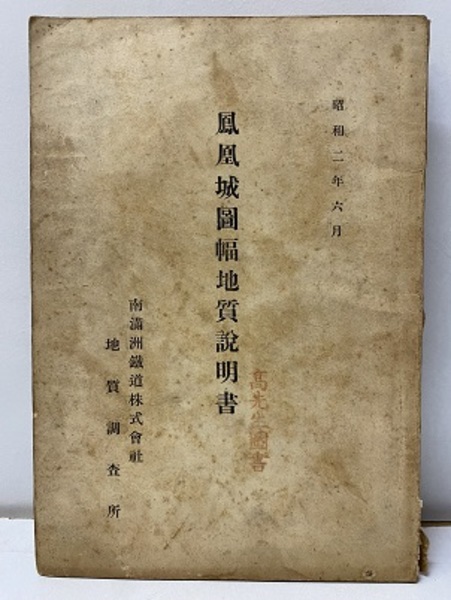 昭和二年六月
鳳凰城圖幅地質說明書
高先生圖書
南滿洲鐵道株式會社
地質調查所